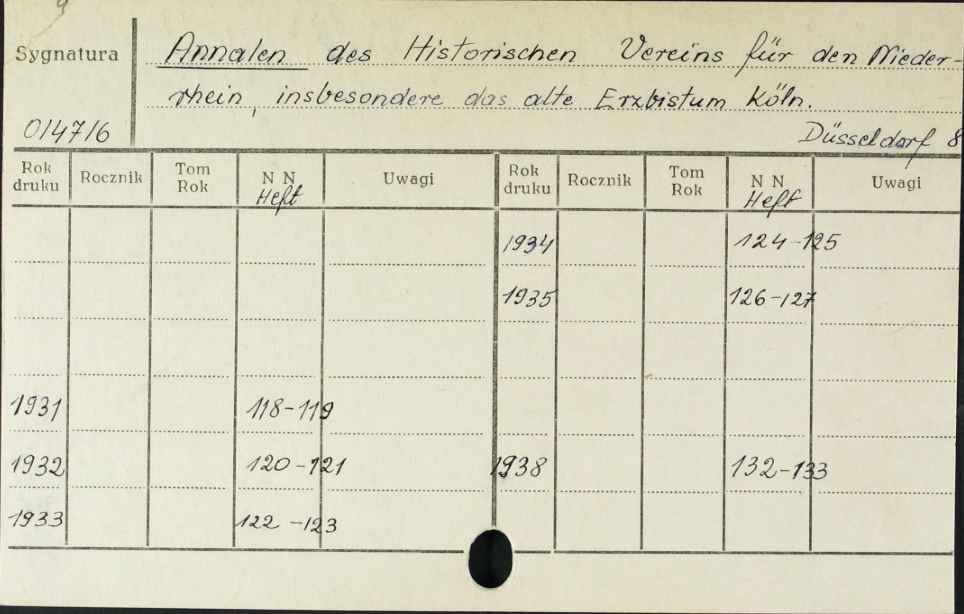 9
Sygnatura
Annalen des Historischen Vereins für den Nieder-
rhein, insbesondere das alte Erzbistum Köln.
014716
Düsseldorf 8
Rok druku Rocznik Tom Rok N N Heft Uwagi Rok druku Rocznik Tom Rok N N Heft Uwagi
1934 124-125
1935 126-127
1931 118-119
1932 120-121 1938 132-133
1933 122-123